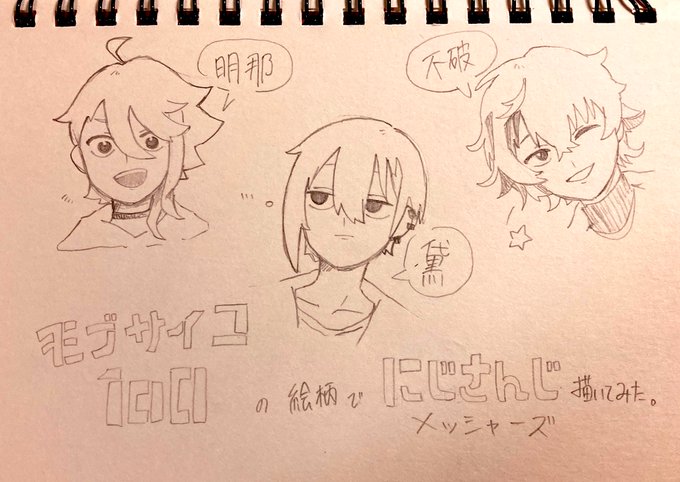 明那
不破
黛
モブサイコ
100
の 絵柄で にじさんじ 描いてみた。
メッシャーズ